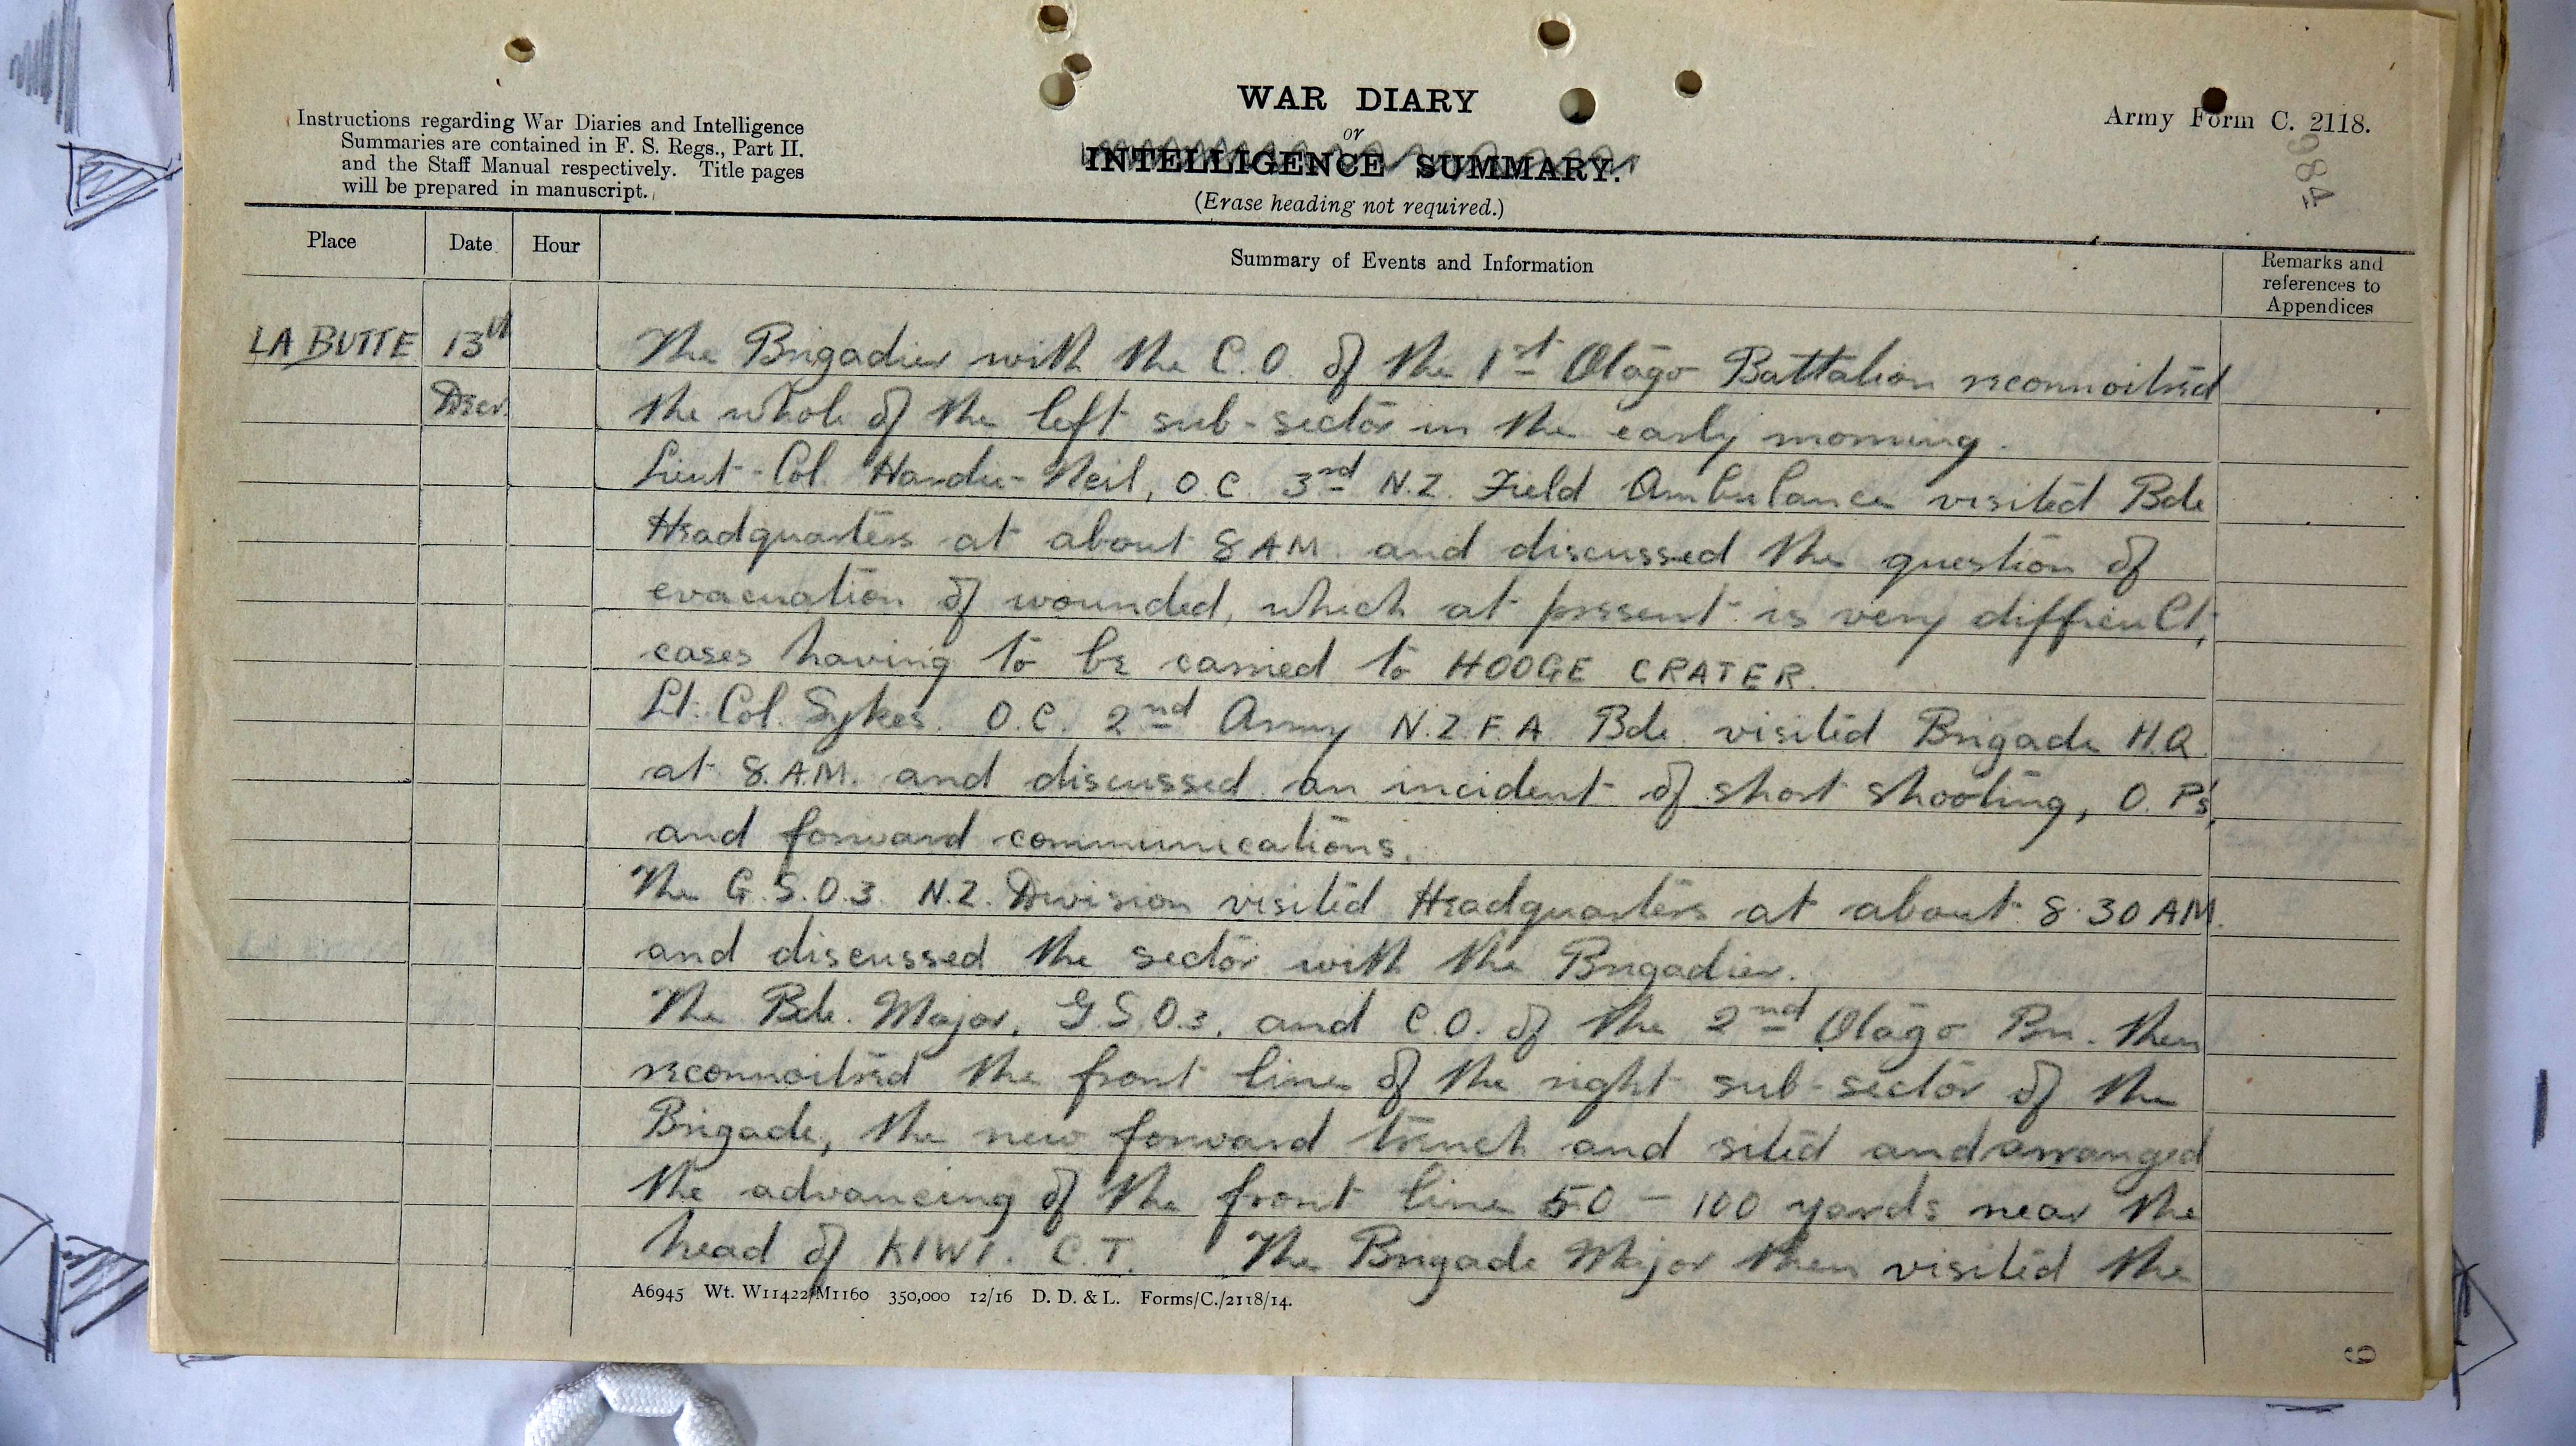 Instructions regarding War Diaries and Intelligence
Summaries are contained in F. S. Regs., Part II.
and the Staff Manual respectively. Title pages
will be prepared in manuscript.
WAR DIARY
or
INTELLIGENCE SUMMARY.
(Erase heading not required.)
Army Form C. 2118.
984
Place Date Hour Summary of Events and Information Remarks and
references to
Appendices
LA BUTTE 13th The Brigadier with the C.O. of the 1st Otago Battalion reconnoitred
Decr. the whole of the left sub-sector in the early morning.
Lieut-Col. Hardie-Neil, O.C. 3rd N.Z. Field Ambulance visited Bde
Headquarters at about 8 AM. and discussed the question of
evacuation of wounded, which at present is very difficult,
cases having to be carried to HOOGE CRATER.
Lt. Col. Sykes. O.C. 2nd Army N.Z.F.A. Bde. visited Brigade H.Q.
at 8.A.M. and discussed an incident of short shooting, O.P's,
and forward communications.
The G.S.O.3. N.Z. Division visited Headquarters at about 8.30 AM.
and discussed the sector with the Brigadier.
The Bde. Major, G.S.O.3. and C.O. of the 2nd Otago Bn. then
reconnoitred the front line of the right sub-sector of the
Brigade, the new forward trench and sited and arranged
the advancing of the front line 50 - 100 yards near the
head of KIWI. C.T. The Brigade Major then visited the
A6945 Wt. W11422/M1160 350,000 12/16 D. D. & L. Forms/C./2118/14.